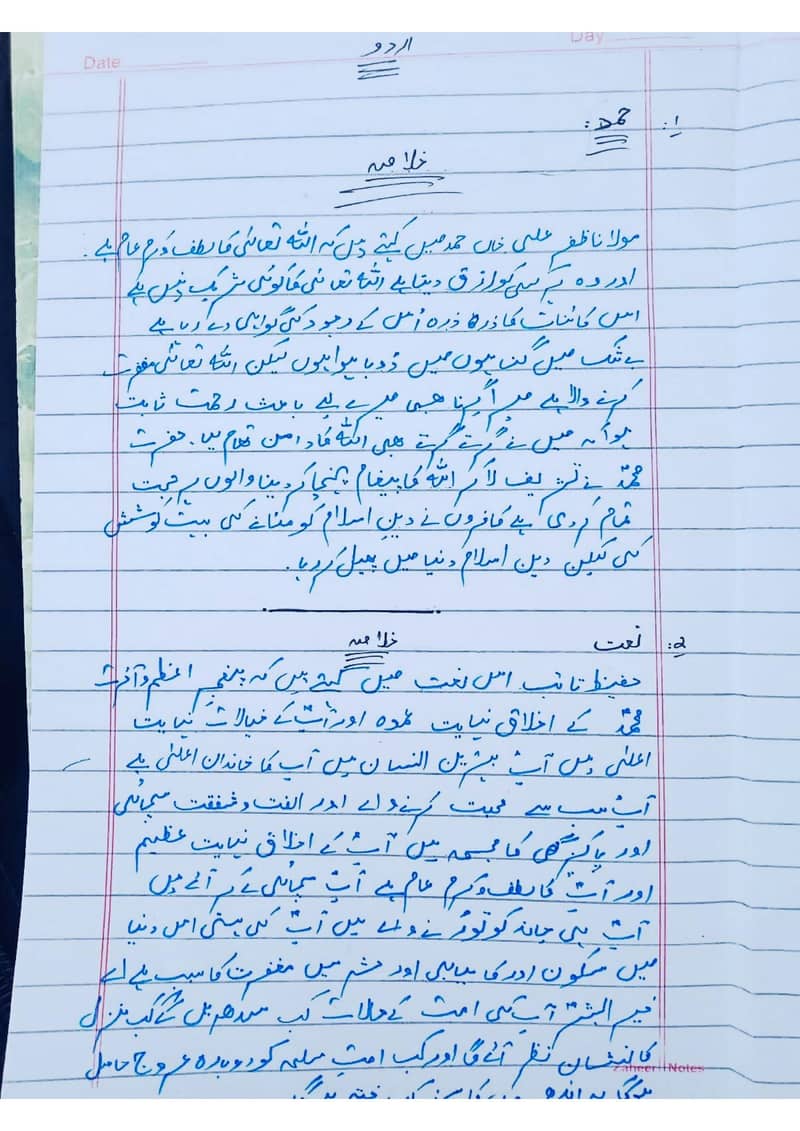 Date
Day
اردو
۱: حمد:
خلاصہ
مولانا ظفر علی خاں حمد میں کہتے ہیں کہ اللہ تعالیٰ کا لطف و کرم عام ہے۔
اور وہ ہر کسی کو رزق دیتا ہے اللہ تعالیٰ کا کوئی شریک نہیں ہے
اس کائنات کا ذرہ ذرہ اُس کے وجود کی گواہی دے رہا ہے
بے شک میں گناہوں میں ڈوبا ہوا ہوں لیکن اللہ تعالیٰ مغفرت
کرنے والا ہے میرا گرنا بھی میرے لیے باعث رحمت ثابت
ہوا کہ میں نے گرتے گرتے بھی اللہ کا دامن تھام لیا۔ حضرت
محمدؐ نے تشریف لا کر اللہ کا پیغام پہنچا کر دینا والوں پر حجت
تمام کر دی ہے کافروں نے دینِ اسلام کو مٹانے کی بہت کوشش
کی لیکن دین اسلام دنیا میں پھیل کر رہا۔
2: نعت خلاصہ
حفیظ تائب اس نعت میں کہتے ہیں کہ پیغمبرِ اعظم و آخرت
محمدؐ کے اخلاق نہایت عمدہ اور آپؐ کے خیالات نہایت
اعلیٰ ہیں آپؐ بہترین انسان ہیں آپ کا خاندان اعلیٰ ہے
آپؐ سب سے محبت کرنے والے اور الفت و شفقت سچائی
اور پاکیزگی کا مجسمہ ہیں آپؐ کے اخلاق نہایت عظیم
اور آپؐ کا لطف و کرم عام ہے آپؐ سچائی لے کر آئے ہیں
آپؐ کو توڑنے والے ہیں آپؐ کی ہستی اس دنیا
میں سکون اور کامیابی اور حشر میں مغفرت کا سبب ہے اے
خیر البشرؐ آپ کی امت کے حالات کب سدھریں گے کب منزل
کا نشان نظر آئے گا اور کب امتِ مسلمہ کو دوبارہ عروج حاصل
Zaheer Notes